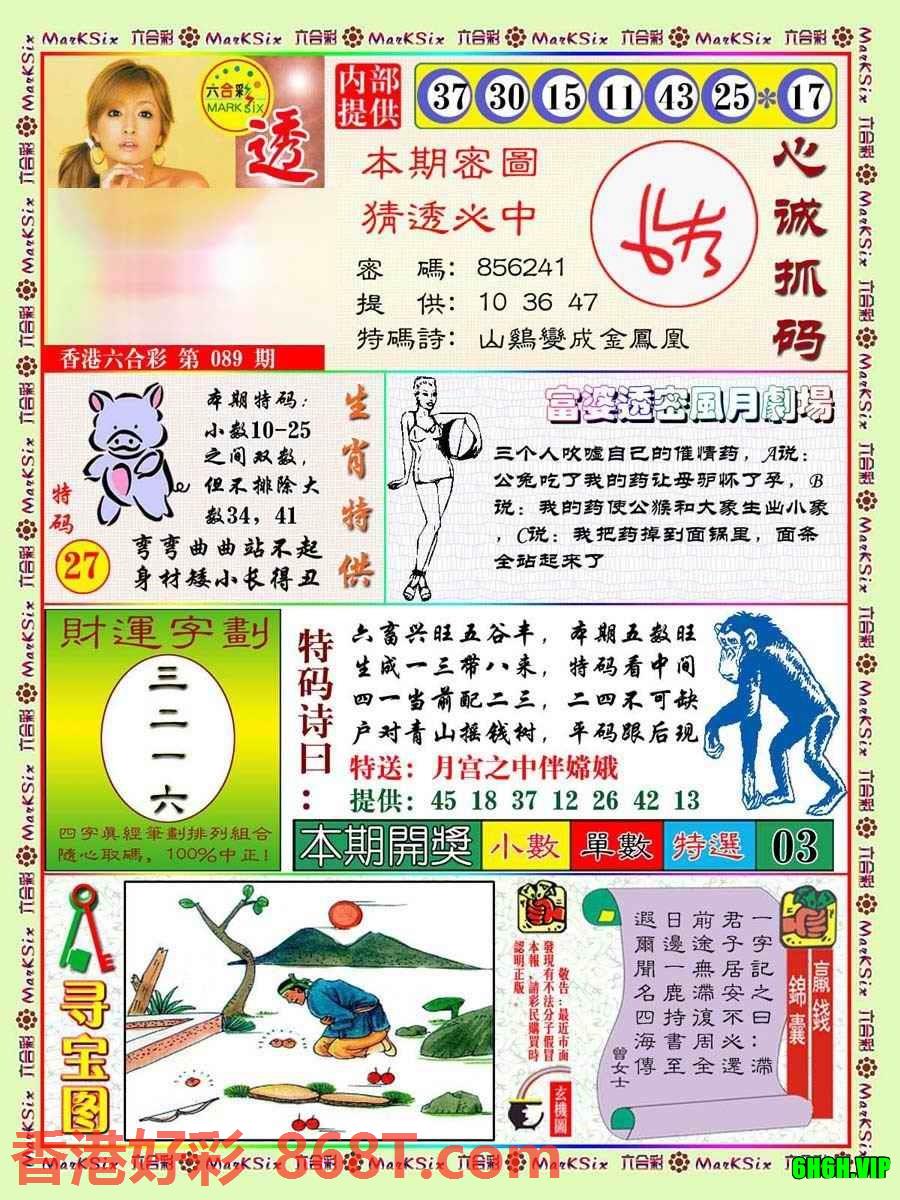 MarKSix 六合彩 MarKSix 六合彩 MarKSix 六合彩 MarKSix 六合彩 MarKSix 六合彩
六合彩
MARK SIX
透
内部
提供
37 30 15 11 43 25 * 17
本期密圖
猜透必中
密 碼: 856241
提 供: 10 36 47
特碼詩: 山鷄變成金鳳凰
心诚抓码
香港六合彩 第 089 期
本期特码:
小数10-25
之间双数,
但不排除大
数34, 41
弯弯曲曲站不起
身材矮小长得丑
特码
27
生肖特供
富婆透密風月劇場
三个人吹嘘自己的催情药, A说:
公兔吃了我的药让母驴怀了孕, B
说: 我的药使公猴和大象生出小象
, C说: 我把药掉到面锅里, 面条
全站起来了
財運字劃
三
二
一
六
四字真經筆劃排列組合
隨心取碼, 100%中正!
特码诗曰:
六畜兴旺五谷丰, 本期五数旺
生成一三带八来, 特码看中间
四一当前配二三, 二四不可缺
户对青山摇钱树, 平码跟后现
特送: 月宫之中伴嫦娥
提供: 45 18 37 12 26 42 13
本期開獎 小數 單數 特選 03
寻宝图
敬告:最近市面
發現有不法分子假冒
本報,請彩民購買時
認明正版。
玄機圖
一字記之曰:滯
君子居安不必還
前途無滯復周全
日邊一鹿持書至
遐爾聞名四海傳
曾女士
贏錢
錦囊
香港好彩 868T.com
6H6H.VIP
MarKSix 六合彩 MarKSix 六合彩 MarKSix 六合彩 MarKSix 六合彩 MarKSix